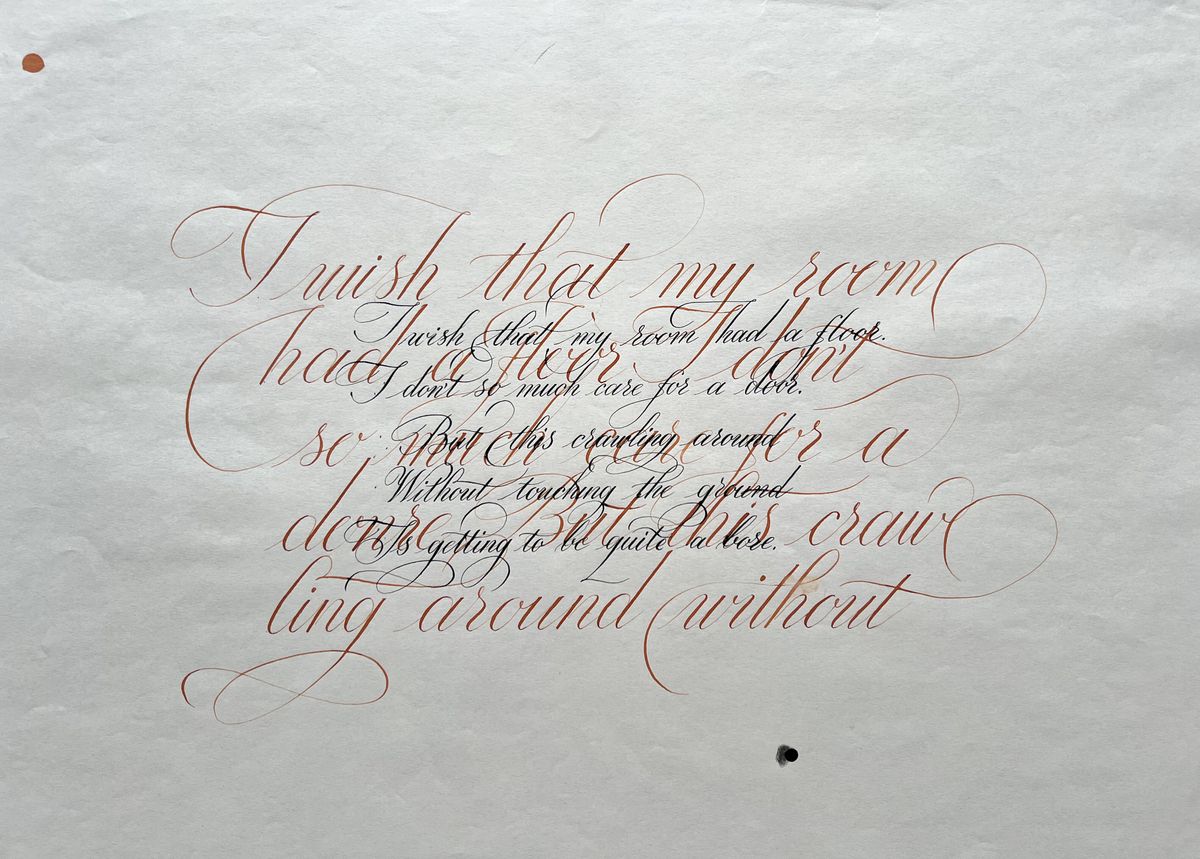 I wish that my room
had a floor. I don't
so much care for a
But this craw
ling around without
I wish that my room had a floor.
I don't so much care for a door.
But this crawling around
Without touching the ground
Is getting to be quite a bore.